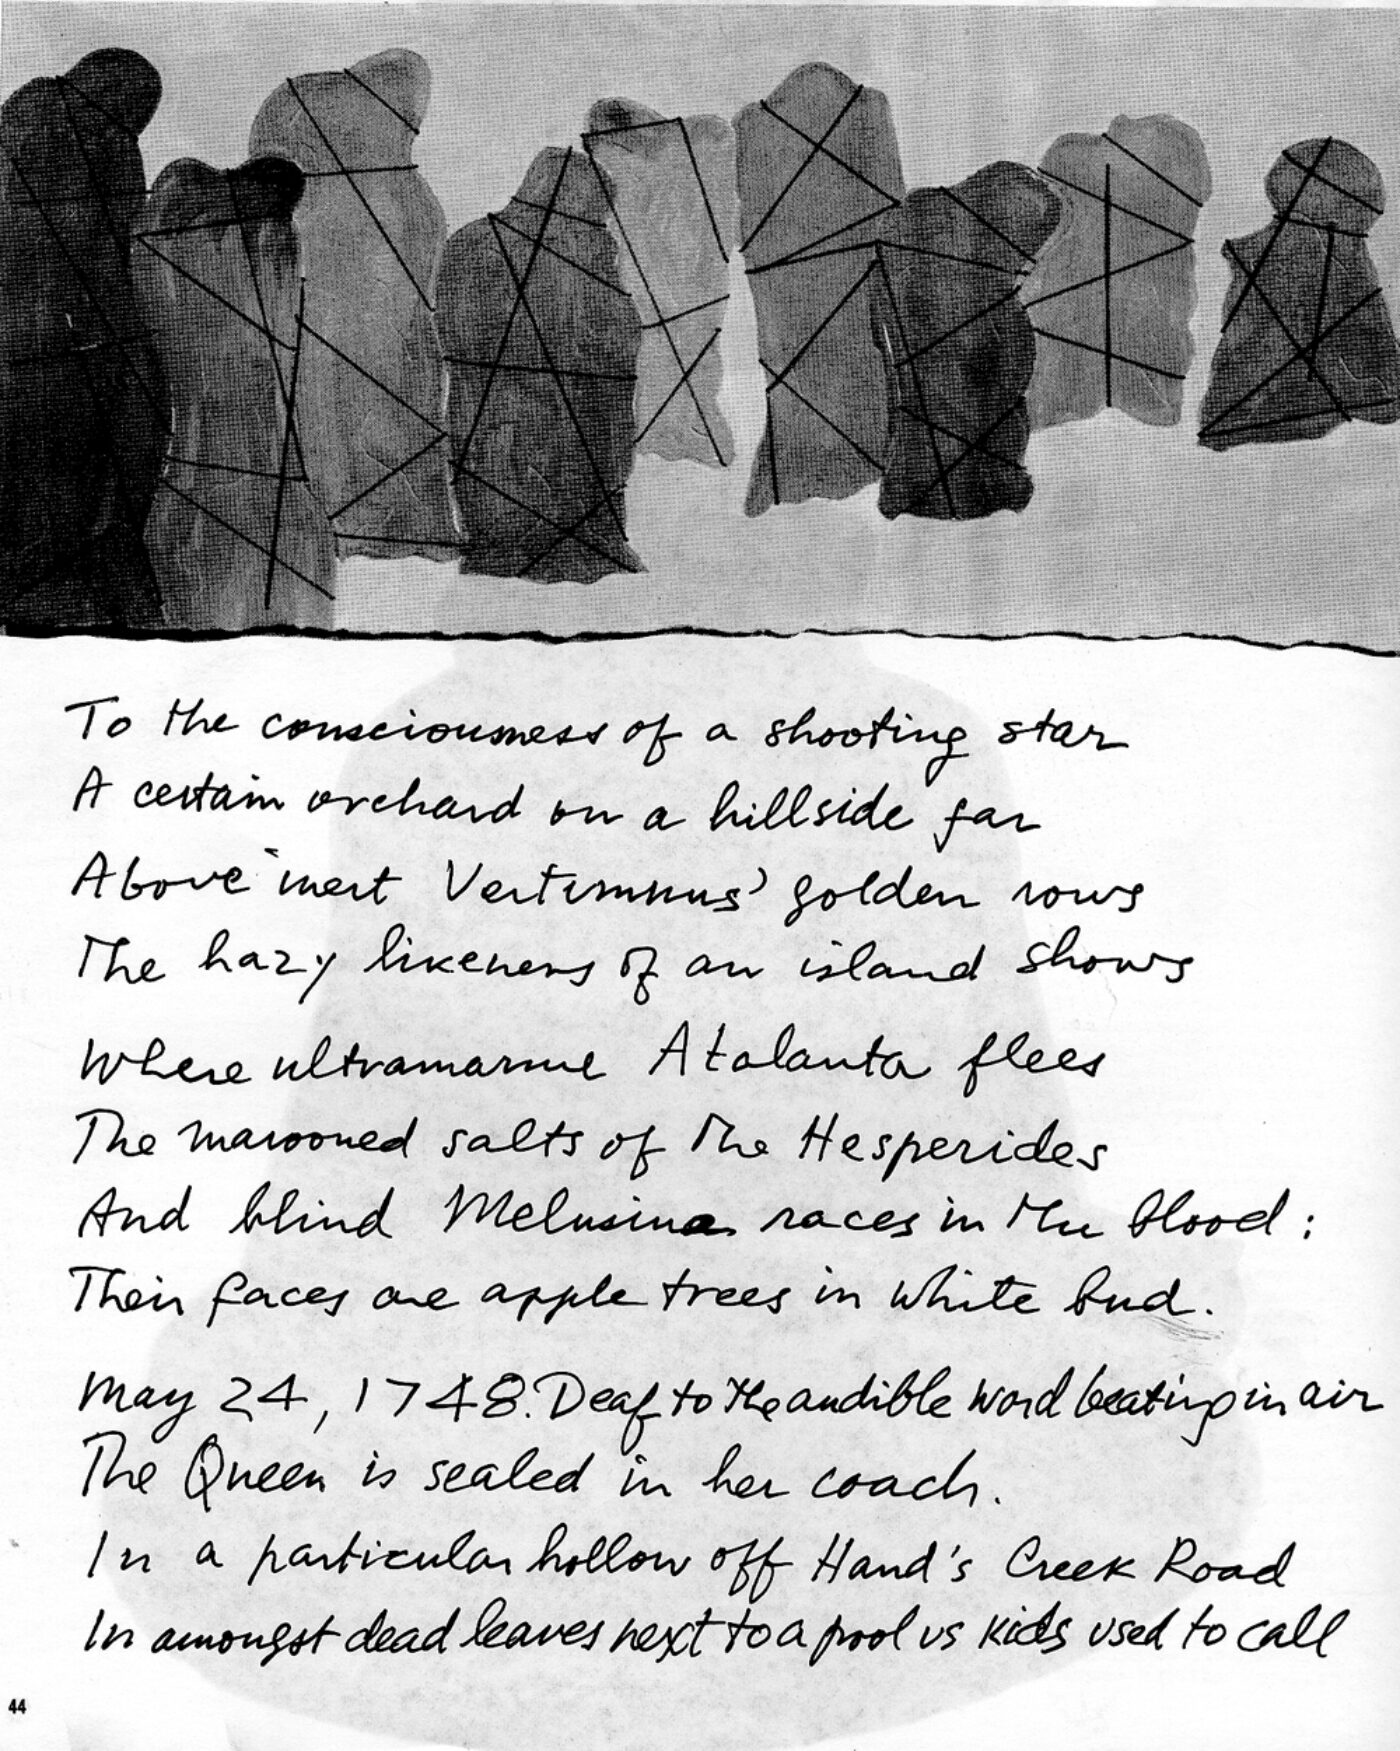 To the consciousness of a shooting star
A certain orchard on a hillside far
Above inert Vertumnus' golden rows
The hazy likeness of an island shows
Where ultramarine Atalanta flees
The marooned salts of the Hesperides
And blind Melusina races in the blood:
Their faces are apple trees in white bud.
May 24, 1748. Deaf to the audible word beating in air
The Queen is sealed in her coach.
In a particular hollow off Hand's Creek Road
In amongst dead leaves next to a pool us kids used to call
44